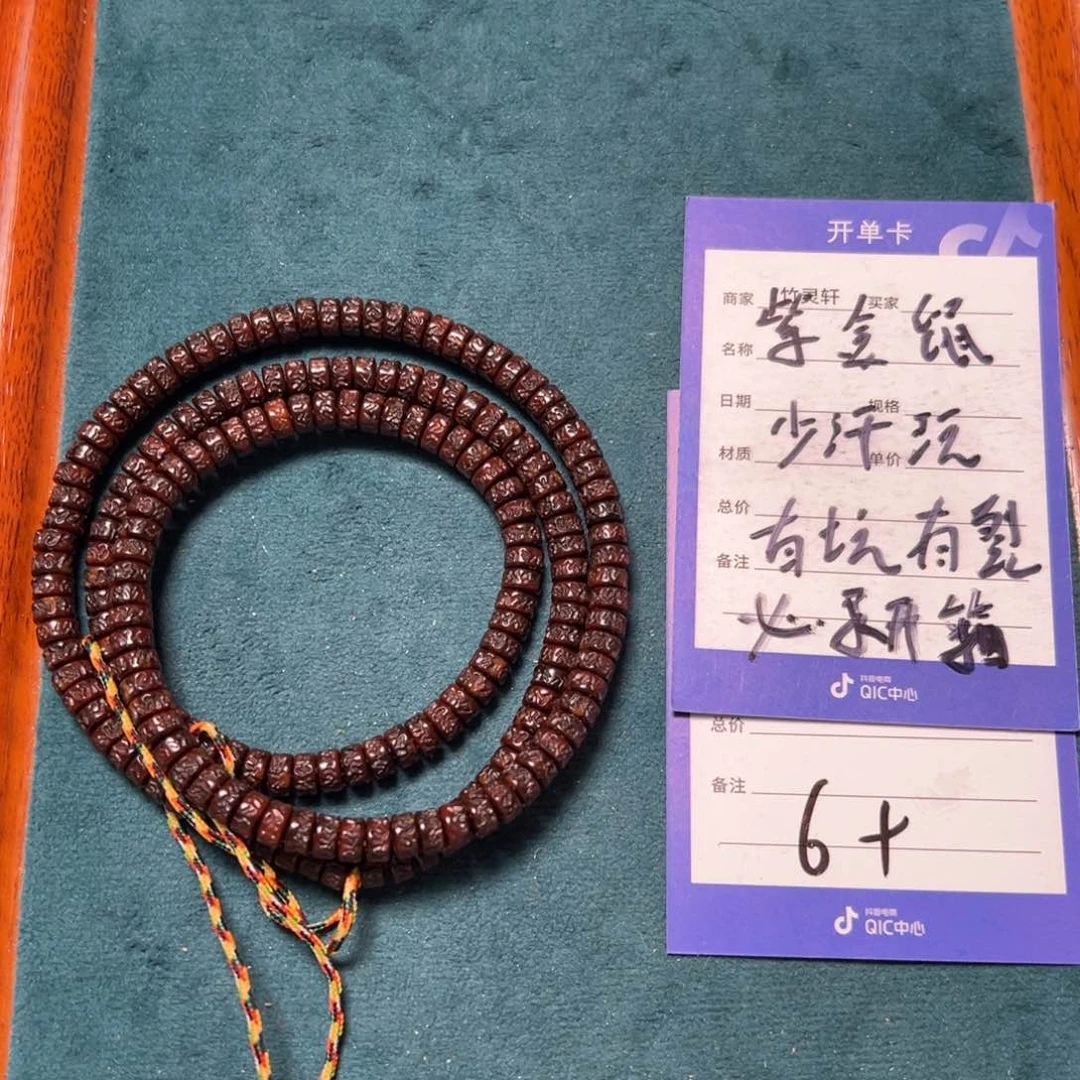 开单卡
商家 竹灵轩 买家
紫金绳
名称
日期 规格
少汗玩
材质 单价
总价
有坑有裂
备注
必录开箱
抖音电商
QIC中心
总价
备注
6+
抖音电商
QIC中心